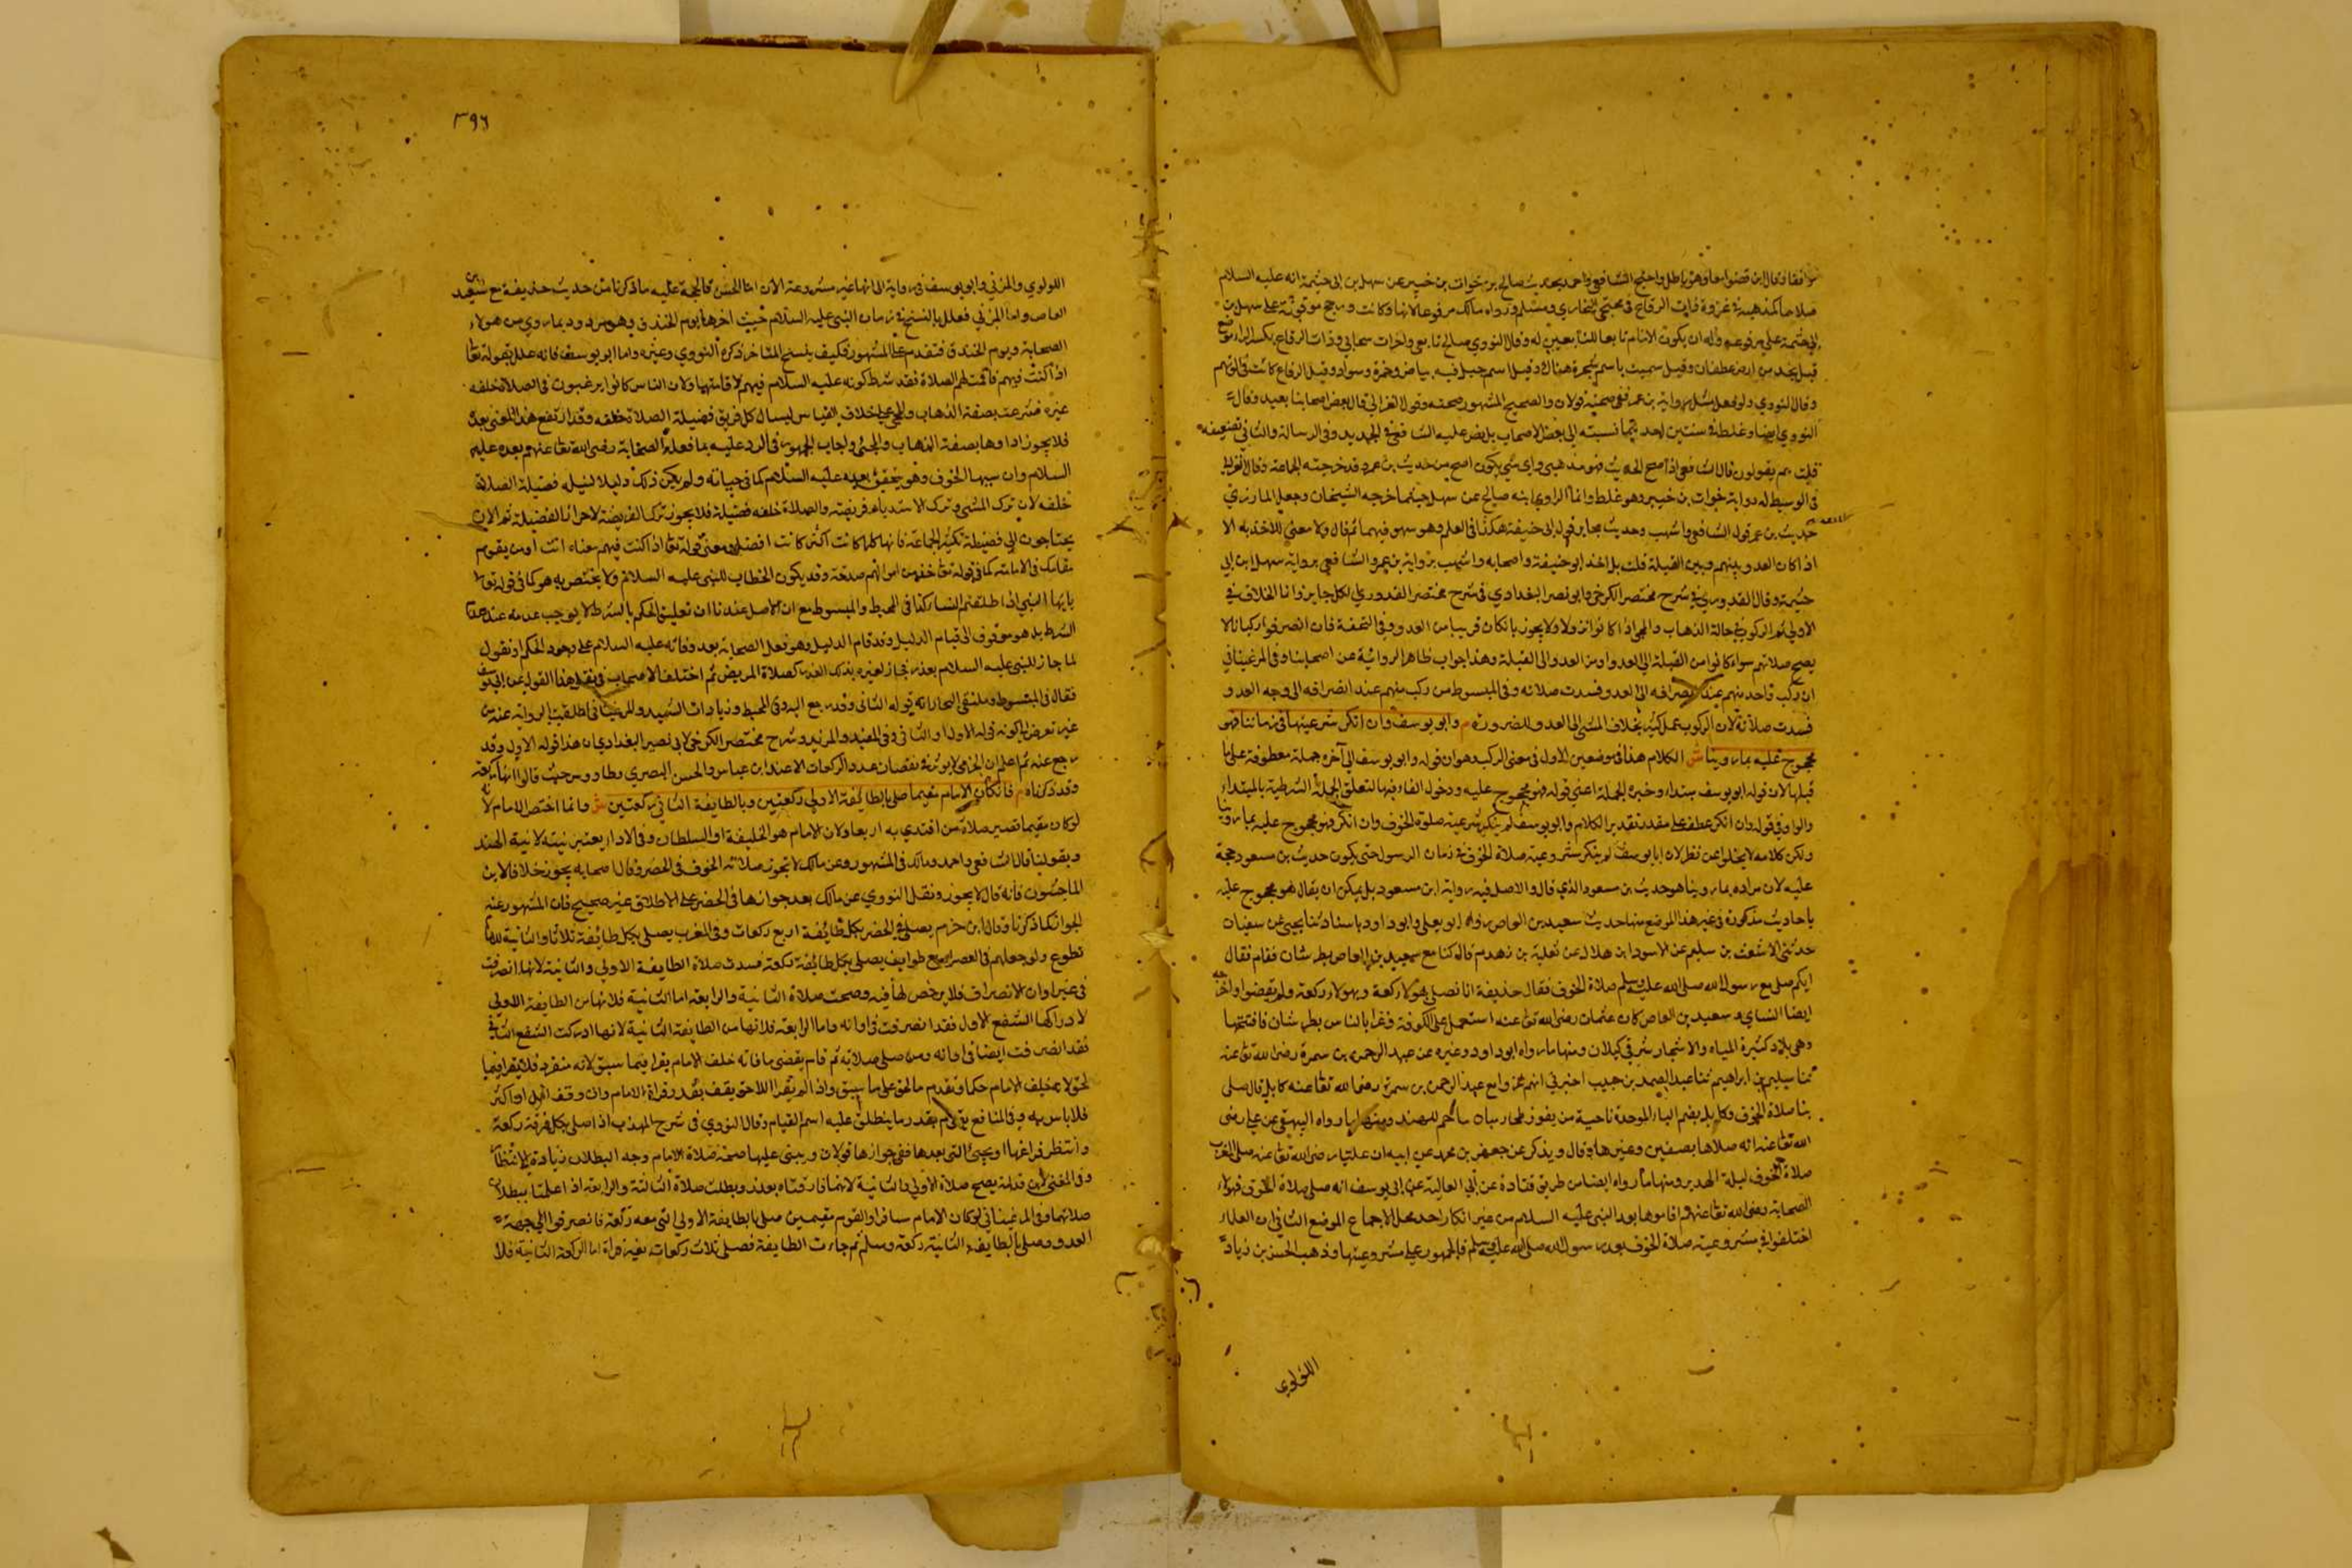 صلاها كمذهبه في غزوة ذات الرقاع في مجتبى البخاري ومسلم ورواه مالك مرفوعا
قبل نجد من ارض غطفان وقيل سميت باسم شجرة هناك وقيل اسم جبل فيه بياض وحمرة وسواد وقيل الرقاع كانت في الويتهم
وقال النووي ولو فعل مثل رواية بن عمر ففي صحته قولان والصحيح المشهور صحته وقول الغزالي قال بعض اصحابنا بعيد وقال
النووي ايضا وغلط في شيئين احدهما نسبته الى بعض الاصحاب بل نص عليه الشافعي في الجديد وفي الرسالة والثاني تضعيفه
قلت هم يقولون قال الشافعي اذا صح الحديث فهو مذهبي واي شي يكون اصح من حديث بن عمر وقد خرجته الجماعة وقال الغزالي
في الوسيط له رواية خوات بن خبير وهو غلط وانما الراوي ابنه صالح عن سهل اخرجه الشيخان وجعل المازري
حديث بن عمر قول الشافعي واشهب وحديث جابر قول ابي حنيفة هكذا في العلم وهو سهو فيهما ثم قال ولا معنى للاخذ به الا
اذا كان العدو بينهم وبين القبلة قلت بل اخذ ابو حنيفة واصحابه واشهب برواية بن عمر والشافعي برواية سهل ابن ابي
حثيمة وقال القدوري في شرح مختصر الكرخي وابو نصر البغدادي في شرح مختصر القدوري لكل جايز وانما الخلاف في
الاولى
يصح صلاتهم سواء كانوا من القبلة الى العدو او من العدو الى القبلة وهذا جواب ظاهر الرواية عن اصحابنا وفي المرغيناني
ان ركب واحد منهم عند انصرافه الى العدو فسدت صلاته وفي المبسوط من ركب منهم عند انصرافه الى وجه العدو
فسدت صلاته لان الركوب عمل كثير بخلاف المشي الى العدو للضرورة م وابو يوسف وان انكر شرعيتها في زماننا فهو
محجوج عليه بما روينا ش الكلام هنا في موضعين الاول في معنى التركيب وهو ان قوله وابو يوسف الى آخره جملة معطوفة على ما
قبلها لان قوله ابو يوسف مبتداء وخبره الجملة اعني قوله فهو محجوج عليه ودخول الفاء فيها لتعلق الجملة الشرطية بالمبتداء
والواو في قوله وان انكر عطف على مقدر تقدير الكلام وابو يوسف لم ينكر شرعية صلوة الخوف وان انكر فهو محجوج عليه بما روينا
ولكن كلامه لا يخلوا عن نظر لان ابا يوسف لم ينكر مشروعية صلاة الخوف في زمان الرسول حتى يكون حديث بن مسعود حجة
عليه لان مراده بما روينا هو حديث بن مسعود الذي قال والاصل فيه رواية ابن مسعود بل يمكن ان يقال هو محجوج عليه
باحاديث مذكورة في غير هذا الموضع منها حديث سعيد بن العاص رواه ابو يعلى وابو داود باسناد ثنا يحيى عن سفيان
حدثني الاشعث بن سليم عن الاسود ابن هلال عن ثعلبة بن زهدم قال كنا مع سعيد بن العاص بطبرستان فقام فقال
ايكم صلى مع رسول الله صلى الله عليه وسلم صلاة الخوف فقال حذيفة انا فصلى بهؤلا ركعة وبهولاء ركعة ولم يقضوا واخرجه
ايضا النساي وسعيد بن العاص كان عثمان رضي الله تعالى عنه استعمل على الكوفة وغزا بالناس بطبرستان فافتتحها
وهي بلاد كثيرة المياه والاشجار شرقي كيلان ومنها ما رواه ابو داود وغيره عن عبد الرحمن بن سمرة رضي الله تعالى عنه
ثنا مسلم بن ابراهيم ثنا عبد الصمد بن حبيب اخبرني ابي انهم غزوا مع عبد الرحمن بن سمرة رضي الله تعالى عنه كابل قال صلى
بنا صلاة الخوف وكابل بضم الباء الموحدة ناحية من ومنها ما رواه البيهقي عن علي رضي
الله تعالى عنه انه صلاها بصفين وغيرها وقال ويذكر عن جعفر بن محمد عن ابيه ان عليا رضي الله تعالى عنه صلى المغرب
صلاة الخوف ليلة الهرير ومنها ما رواه ايضا من طريق قتادة عن ابي العالية عن ابي يوسف انه صلى صلاة الخوف فهولاء
الصحابة رضي الله تعالى عنهم اقاموها بعد النبي عليه السلام من غير انكار احد محل الاجماع الموضع الثاني ان العلماء
اختلفوا في مشروعية صلاة الخوف بعد رسول الله صلى الله عليه وسلم فالجمهور على مشروعيتها وذهب الحسن بن زياد
اللولوي
٣٩٦
اللولوي والمزني وابو يوسف في رواية الى انها غير مشروعة الان اما الحسن فالحجة عليه ما ذكرنا من حديث حذيفة مع سعيد بن
العاص واما المزني فعلل بالنسخ في زمان النبي عليه السلام حيث اخرها يوم الخندق وهو مردود بما روي من هولاء
الصحابة ويوم الخندق متقدم على المشهور فكيف ينسخ المتاخر ذكره النووي وغيره واما ابو يوسف فانه علل بقوله تعالى
اذا كنت فيهم فاقمت لهم الصلاة فقد شرط كونه عليه السلام فيهم لاقامتها ولان الناس كانوا يرغبون في الصلاة خلفه
غيره فشرعت بصفة الذهاب والمجي على خلاف القياس لينال كل فريق فضيلة الصلاة خلفه وقد ارتفع هذا المعنى بعده
فلا يجوز اداوها بصفة الذهاب والمجئ واجاب الجمهور في الرد عليه بما فعله الصحابة رضي الله تعالى عنهم بعده عليه
السلام وان سببها الخوف وهو يتحقق بعده عليه السلام كما في حياته ولم يكن ذلك دليلا لنيله فضيلة الصلاة
خلفه لان ترك المشي وترك الاستدبار فريضة والصلاة خلفه فضيلة فلا يجوز ترك الفريضة لاحراز الفضيلة ثم الان
يحتاجون الى فضيلة تكثير الجماعة فانها كلما كانت اكثر كانت افضل ومعنى قوله تعالى اذا كنت فيهم معناه انت او من يقوم
مقامك في الامامة كما في قوله تعالى خذ من اموالهم صدقة وقد يكون الخطاب للنبي عليه السلام ولا يختص به هو كما في قوله تعالى
يايها النبي اذا طلقتم النسا كذا في المحيط والمبسوط مع ان الاصل عندنا ان تعليق الحكم بالشرط لا يوجب عدمه عند عدم
الشرط بل هو موقوف الى قيام الدليل وقد قام الدليل وهو فعل الصحابة بعد وفاته عليه السلام على وجود الحكم او نقول
لما جاز للنبي عليه السلام بعذر فجاز لغيره بذلك العذر كصلاة المريض ثم اختلف الاصحاب في نقل هذا القول عن ابي يوسف
فقال في المبسوط وملتقى البحار انه قوله الثاني وقد رجع اليه وفي المحيط وزيادات الشهيد والمرغيناني اطلقت الرواية عنه من
غير تعرض لكونه قوله الاول او الثاني وفي المفيد والمزيد وشرح مختصر الكرخي لابي نصر البغدادي ان هذا قوله الاول وقد
رجع عنه ثم اعلم ان الخوف لا يوثر في نقصان عدد الركعات الا عند ابن عباس والحسن البصري وطاووس حيث قالوا انها ركعة
وقد ذكرناه م فان كان الامام مقيما صلى بالطايفة الاولى ركعتين وبالطايفة الثاني ركعتين ش وانما اختص الامام لانه
لو كان مقيما تصير صلاة من اقتدي به اربعا ولان الامام هو الخليفة او السلطان وفي الاداء يعتبر نيته لا نية الجند
وبقولنا قال الشافعي واحمد ومالك في المشهور وعن مالك لا تجوز صلاة الخوف في الحضر وقال اصحابه يجوز خلافا لابن
الماجشون فانه قال لا يجوز ونقل النووي عن مالك بعدم جوازها في الحضر على الاطلاق غير صحيح فان المشهور عنه
الجواز كما ذكرنا وقال ابن حزم يصلي في الحضر بكل طايفة اربع ركعات وفي المغرب يصلي بكل طايفة ثلاثا والثانية للامام
تطوع ولو جعلهم في العصر اربع طوايف يصلي بكل طايفة ركعة فسدت صلاة الطايفة الاولى والثانية لانها انصرفت
في غير اوان الانصراف فلا يرخص لها فيه وصحت صلاة الثانية والرابعة اما الثانية فلانها من الطايفة الاولى
لادراكها الشفع الاول فقد انصرفت في اوانه واما الرابعة فلانها من الطايفة الثانية لانها ادركت الشفع الثاني
فقد انصرفت ايضا في اوانه ومن صلى صلاته ثم قام يقضي ما فاته خلف الامام يقرا فيما سبق لانه منفرد فلا يقرا فيما
لحق لانه خلف الامام حكما ويقدم ما لحق على ما سبق واذا لم يقرا اللاحق يقف بقدر قراة الامام وان وقف اقل او اكثر
فلا باس به وفي المنافع يقوم بقدر ما ينطلق عليه اسم القيام وقال النووي في شرح المهذب اذا صلى بكل فرقة ركعة
وانتظر فراغها ومجئ التي بعدها ففي جوازها قولان ويبنى عليها صحة صلاة الامام وجه البطلان زيادة الانتظار
وفي المغني لابن قدامة يصح صلاة الاولى والثانية لانهما فارقتاه بعذر وبطلت صلاة الثالثة والرابعة اذا علمتا ببطلان
صلاتهما وفي المرغيناني لو كان الامام مسافرا والقوم مقيمين صلى بالطايفة الاولى التي معه ركعة فانصرفوا الى جهة
العدو وصلى بالطايفة الثانية ركعة وسلم ثم جاءت الطايفة فصلى ثلاث ركعات بغير قراة اما الركعة الثانية فلا